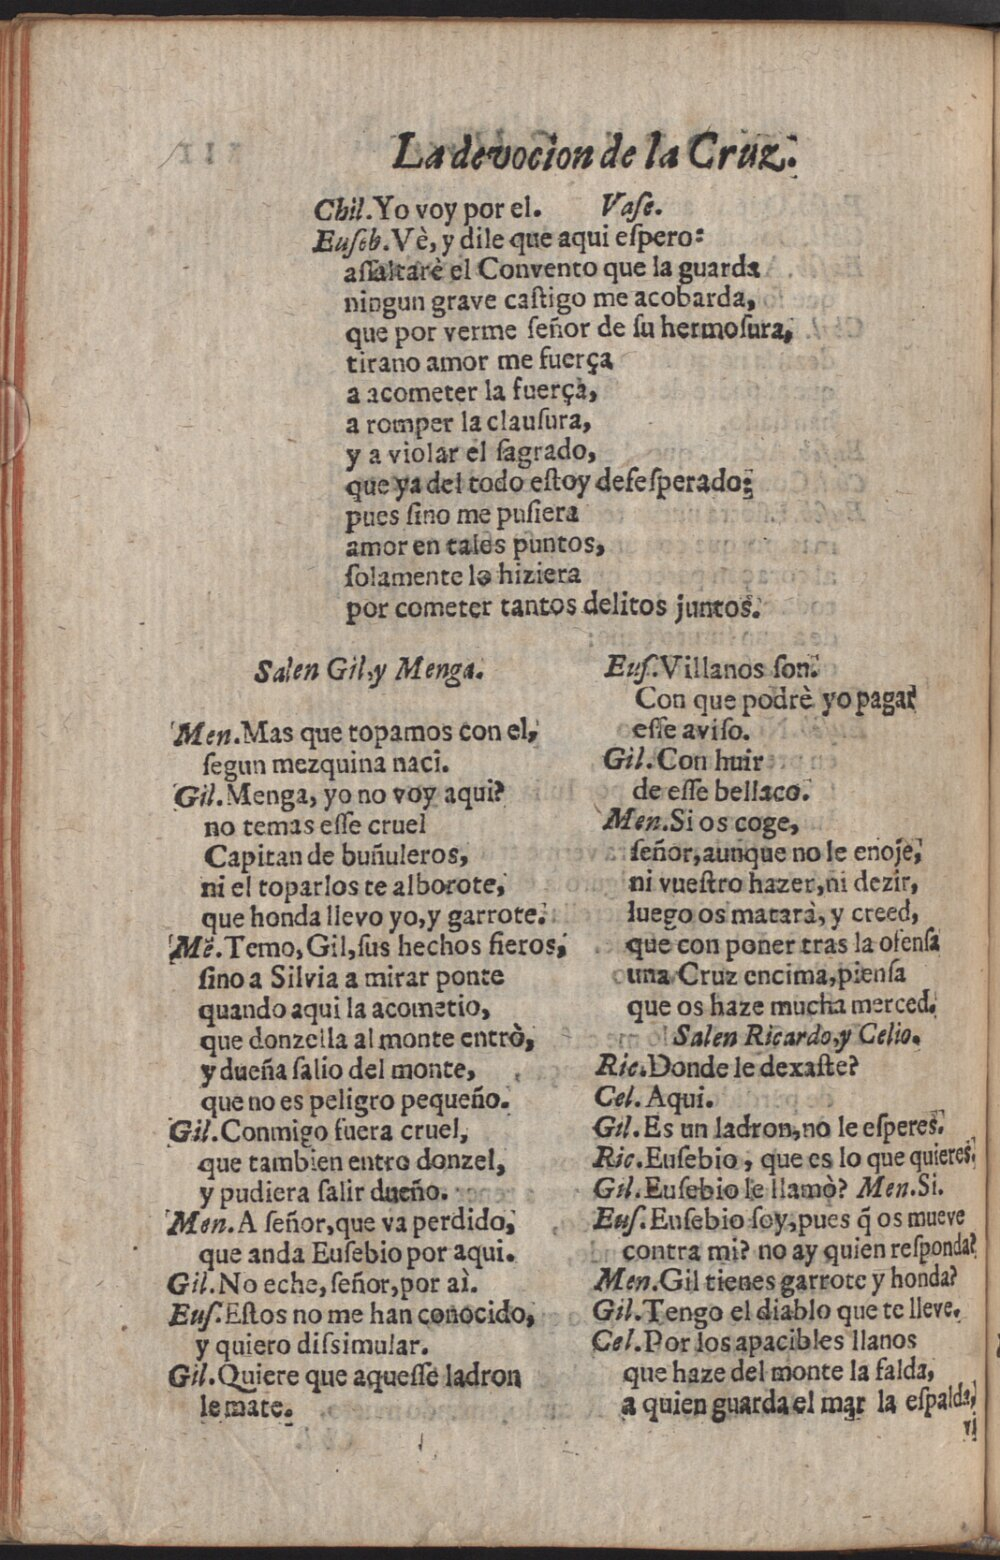 La devocion de la Cruz.
Chil. Yo voy por el. Vase.
Euseb. Vè, y dile que aqui espero:
assaltarè el Convento que la guarda
ningun grave castigo me acobarda,
que por verme señor de su hermosura,
tirano amor me fuerça
a acometer la fuerçà,
a romper la clausura,
y a violar el sagrado,
que ya del todo estoy desesperado:
pues sino me pusiera
amor en tales puntos,
solamente lo hiziera
por cometer tantos delitos juntos.
Salen Gil, y Menga.
Men. Mas que topamos con el,
segun mezquina naci.
Gil. Menga, yo no voy aqui?
no temas esse cruel
Capitan de buñuleros,
ni el toparlos te alborote,
que honda llevo yo, y garrote.
Mē. Temo, Gil, sus hechos fieros,
sino a Silvia a mirar ponte
quando aqui la acometio,
que donzella al monte entrò,
y dueña salio del monte,
que no es peligro pequeño.
Gil. Conmigo fuera cruel,
que tambien entro donzel,
y pudiera salir dueño.
Men. A señor, que va perdido,
que anda Eusebio por aqui.
Gil. No eche, señor, por aì.
Eus. Estos no me han conocido,
y quiero dissimular.
Gil. Quiere que aquesse ladron
le mate.
Eus. Villanos son.
Con que podrè yo pagar
esse aviso.
Gil. Con huir
de esse bellaco.
Men. Si os coge,
señor, aunque no le enoje,
ni vuestro hazer, ni dezir,
luego os matarà, y creed,
que con poner tras la ofensa
una Cruz encima, piensa
que os haze mucha merced.
Salen Ricardo, y Celio.
Ric. Donde le dexaste?
Cel. Aqui.
Gil. Es un ladron, no le esperes.
Ric. Eusebio, que es lo que quieres.
Gil. Eusebio le llamò? Men. Si.
Eus. Eusebio soy, pues q̃ os mueve
contra mi? no ay quien responda?
Men. Gil tienes garrote y honda?
Gil. Tengo el diablo que te lleve.
Cel. Por los apacibles llanos
que haze del monte la falda,
a quien guarda el mar la espalda,
vi